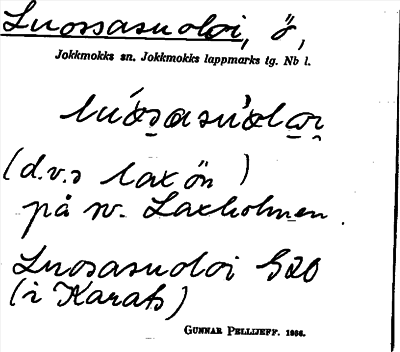 Luossasuoloi, ö,
Jokkmokks sn. Jokkmokks lappmarks tg. Nb l.
(d.v.s laxön)
på sv. Laxholmen.
Luosasuoloi G20
(i Karats)
GUNNAR PELLIJEFF. 1966.